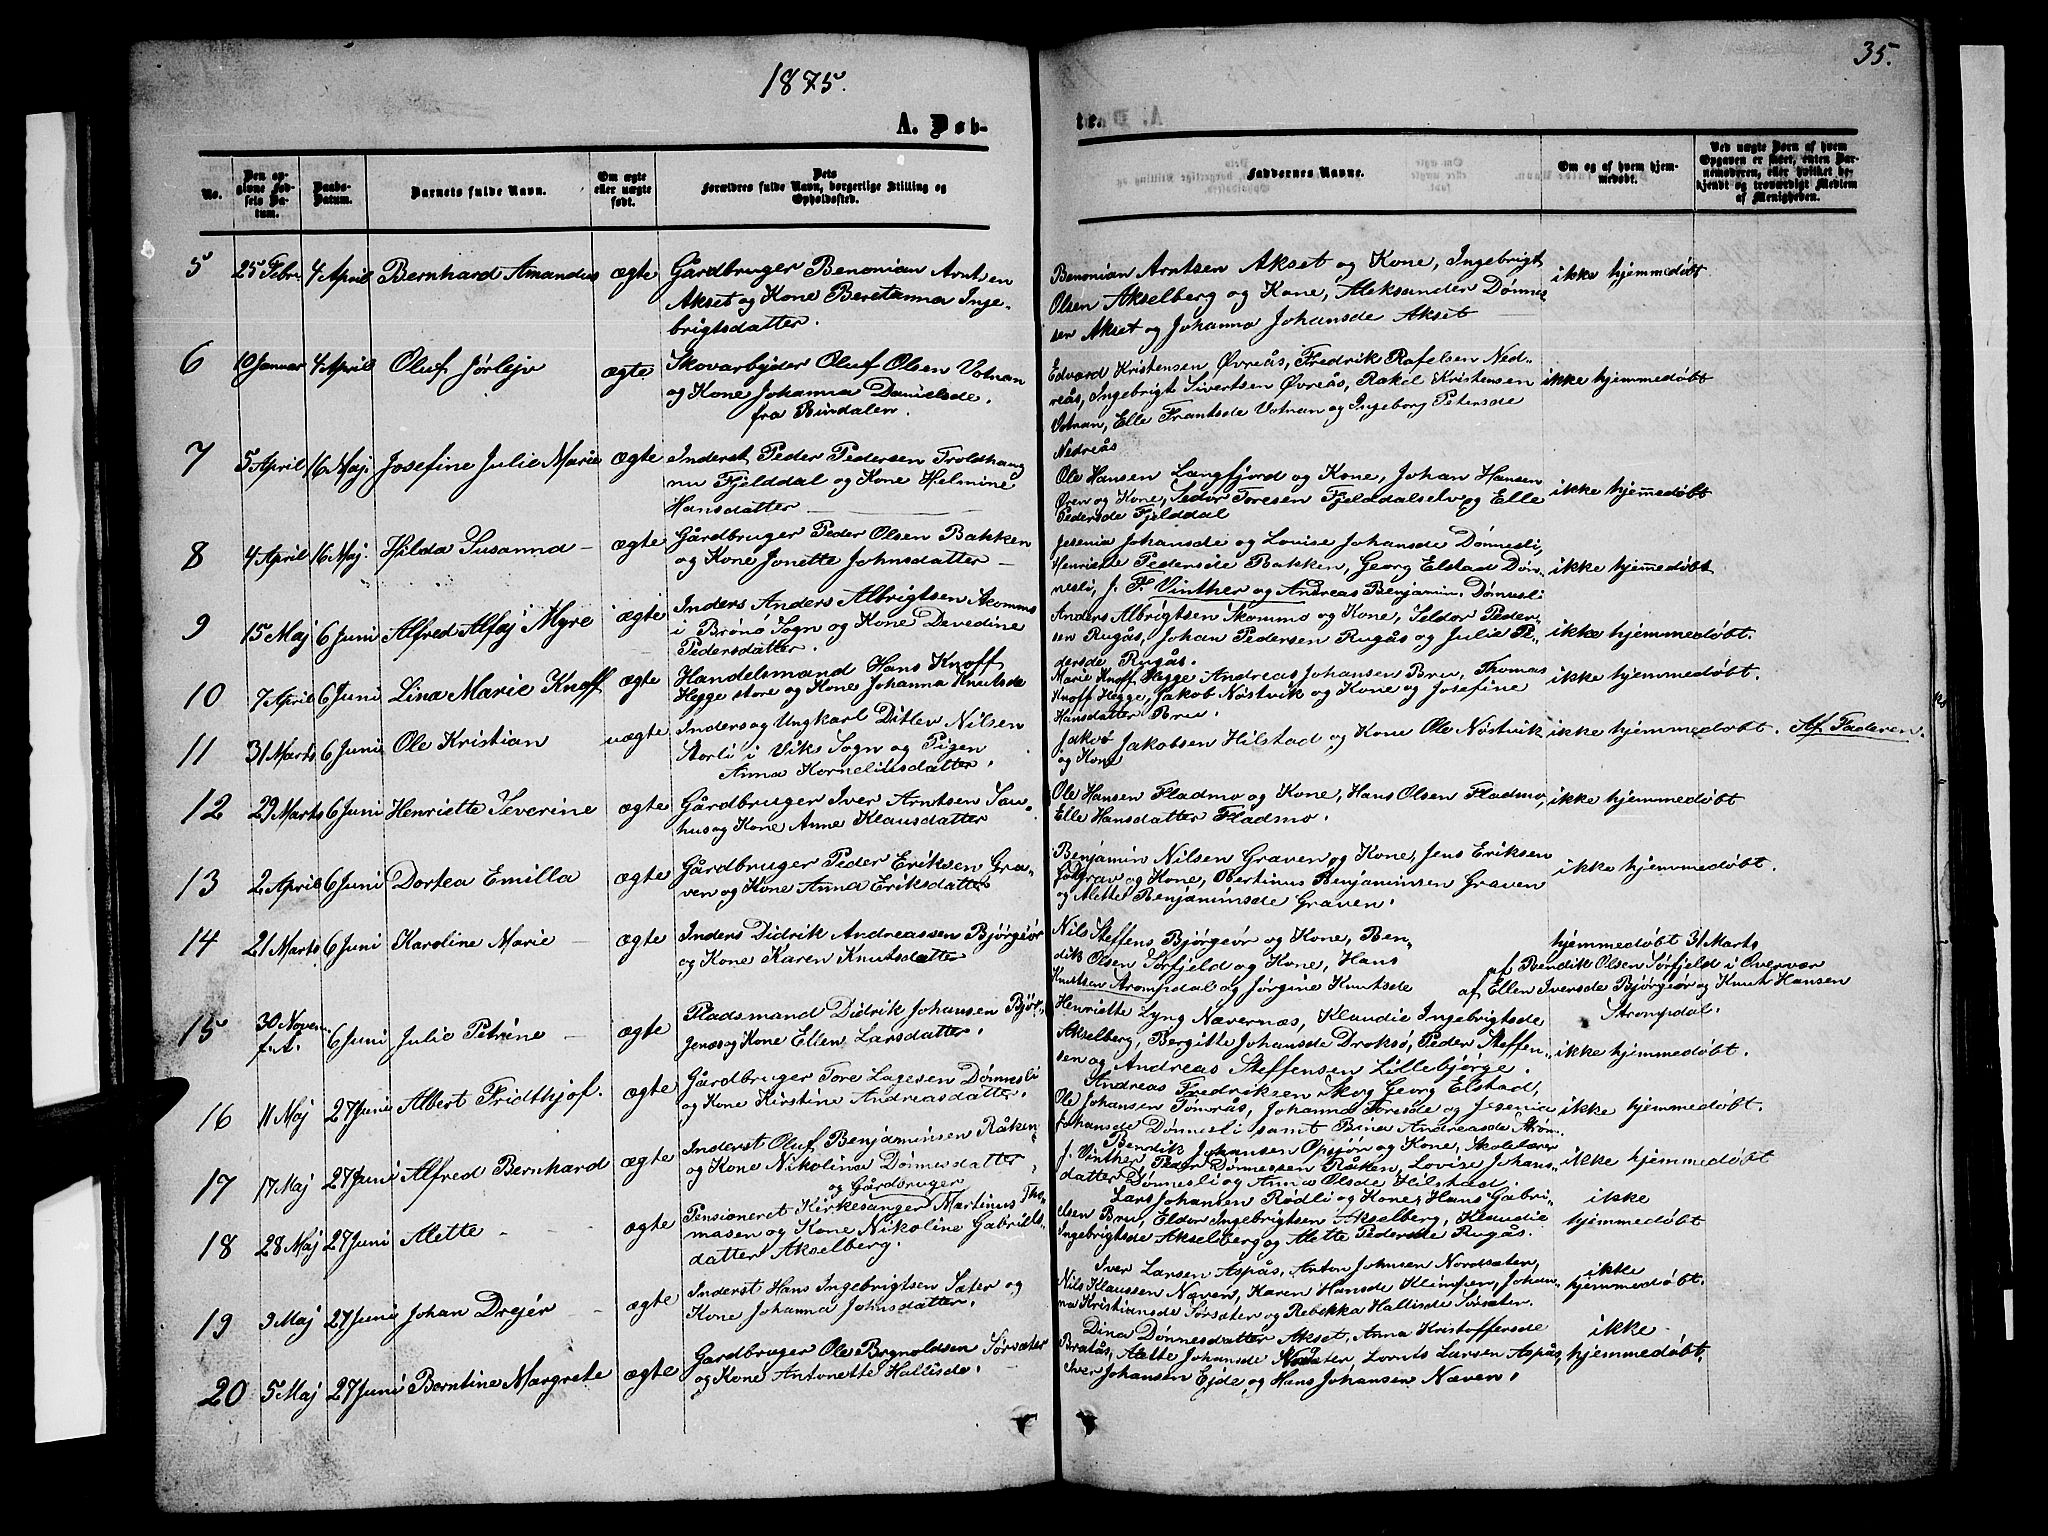 1875.
35.
A. Døb-
te.
No.
Den op-
givne Fød-
sels Da-
tum.
Daabs-
Datum.
Barnets fulde Navn.
Om ægte
eller uægte
født.
Dets
Forældres fulde Navn, borgerlige Stilling og
Opholdssted.
Faddernes Navne.
Om og af hvem hjem-
medøbt.
Ved uægte Børn af hvem
Opgaven er skeet, enten Bar-
nemoderen, eller hvilket be-
kjendt og troværdigt Medlem
af Menigheden.
5 25 Febr. 4 April Bernhard Amandus ægte Gårdbruger Benonian Arntsen
Akset og Kone Beretanna Inge-
brigtsdatter.
Benonian Arntsen Akset og Kone, Ingebrigt
Olsen Akselberg og Kone, Aleksander Dønnes-
sen Akset og Johanna Johansde Akset
ikke hjemmedøbt
6 10 Januar 4 April Oluf Jørlejv ægte Skovarbejder Oluf Olsen Votnan
og Kone Johanna Danielsde.
fra Bindalen.
Edvard Kristensen Øvreås, Fredrik Rafelsen Ned-
reås, Ingebrigt Sivertsen Øvreås, Rakel Kristensen
Votnan, Elle Frantsde Votnan og Ingeborg Petersde
Nedreås
ikke hjemmedøbt
7 5 April 16 Maj. Josefine Julie Marie ægte Inderst Peder Pedersen Troldhaug
nu Fjelddal og Kone Helmine
Hansdatter
Ole Hansen Langfjord og Kone, Johan Hansen
Øren og Kone, Sedor Toresen Fjelddalselv og Elle
Pedersde Fjelddal
ikke hjemmedøbt
8 4 April 16 Maj. Hilda Susanna ægte Gårdbruger Peder Olsen Bakken
og Kone Jonette Johnsdatter
Jesenia Johansde og Lovise Johansde Dønnesli,
Henriette Pedersde Bakken, Georg Elstad Døn-
nesli, J. F. Vinther og Andreas Benjamin. Dønnesli
ikke hjemmedøbt
9 15 Maj 6 Juni Alfred Alføj Myre ægte Inders Anders Albrigtsen Skommo
i Brønø Sogn og Kone Devedine
Pedersdatter.
Anders Albrigtsen Skommo og Kone, Seldor Peder-
sen Rugås, Johan Pedersen Rugås og Julie Pe-
dersde Rugås.
ikke hjemmedøbt.
10 7 April 6 Juni Lina Marie Knoff ægte Handelsmand Hans Knoff
Hegge store og Kone Johanna Knutsde
Marie Knoff Hegge, Andreas Johansen Bru, Thomas
Knoff Hegge, Jakob Nøstvik og Kone og Josefine
Hansdatter Bru.
ikke hjemmedøbt.
11 31 Marts 6 Juni Ole Kristian uægte Inders og Ungkarl Ditlev Nilsen
Storli i Viks Sogn og Pigen
Anna Korneliusdatter.
Jakob Jakobsen Hilstad og Kone Ole Nøstvik
og Kone
ikke hjemmedøbt. Af Faderen.
12 29 Marts 6 Juni Henriette Severine ægte Gårdbruger Iver Arntsen Sau-
hus og Kone Anne Klausdatter
Ole Hansen Fladmo og Kone, Hans Olsen Fladmo,
Elle Hansdatter Fladmo.
ikke hjemmedøbt
13 2 April 6 Juni Dortea Emilla ægte Gårdbruger Peder Eriksen Gra-
ven og Kone Anna Eriksdatter
Benjamin Nilsen Graven og Kone, Jens Eriksen
Gåsgrav og Kone, Obertinus Benjaminsen Graven
og Alette Benjaminsde Graven.
ikke hjemmedøbt.
14 21 Marts 6 Juni Karoline Marie ægte Inders Didrik Andreassen Bjørgeør
og Kone Karen Knutsdatter
Nils Steffens Bjørgeør og Kone, Ben-
dik Olsen Sørfjeld og Kone, Hans
Knutsen Strompdal og Jørgine Knutsde
hjemmedøbt 31 Marts
af Bendik Olsen Sørfjeld i Overvær
af Ellen Iversde Bjørgeør og Knut Hansen
Strompdal.
15 30 Novem.
f. A. 6 Juni Julie Petrine ægte Pladsmand Didrik Johansen Bjør-
genæs og Kone Ellen Larsdatter.
Henriette Lyng Nævernæs, Klaudie Ingebrigtsde
Akselberg, Bergitte Johansde Droksø, Peder Steffen-
sen og Andreas Steffensen Lillebjørge.
ikke hjemmedøbt.
16 11 Maj 27 Juni Albert Fridthjof. ægte Gårdbruger Tore Lagesen Dønnesli
og Kone Kirstine Andreasdatter.
Andreas Fredriksen Skog Georg Elstad,
Ole Johansen Tømrås, Johanna Toresde og Jesenia
Johansde Dønnesli samt Bina Andreasde Strøm.
ikke hjemmedøbt.
17 17 Maj 27 Juni Alfred Bernhard ægte Inderst Oluf Benjaminsen Råken
og Kone Nikolina Dønnesdatter
Bendik Johansen Opsjør og Kone, Skolelærer
J. Vinther, Peder Dønnessen Råken, Lovise Johans-
datter Dønnesli og Anna Olsde Hilstad.
ikke hjemmedøbt
18 28 Maj 27 Juni Alette ægte
og Gårdbruger
Pensioneret Kirkesanger Martinus Tho-
masen og Kone Nikoline Gabriels-
datter Akselberg.
Lars Johansen Rødli og Kone, Hans Gabri-
elsen Bru, Eldor Ingebrigtsen Akselberg, Klaudie
Ingebrigtsde Akselberg og Alette Pedersde Rugås.
ikke
hjemmedøbt
19 3 Maj 27 Juni Johan Drejer ægte Inderst Hans Ingebrigtsen Sæter og
Kone Johanna Johnsdatter.
Iver Larsen Aspås, Anton Johnsen Nordsæter,
Nils Klaussen Næven, Karen Hansde Klimpen, Johan-
na Kristiansde Sørsæter og Rebekka Hallisde Sørsæter.
ikke
hjemmedøbt.
20 5 Maj 27 Juni Berntine Margrete ægte Gardbruger Ole Brynoldsen Sørsæter
og Kone Antonette Hallisde.
Dina Dønnesdatter Akset, Anna Kristoffersde
Bratås, Alette Johansde Nordsæter, Lornts Larsen Aspås,
Iver Johansen Ejde og Hans Johansen Næven.
ikke
hjemmedøbt.